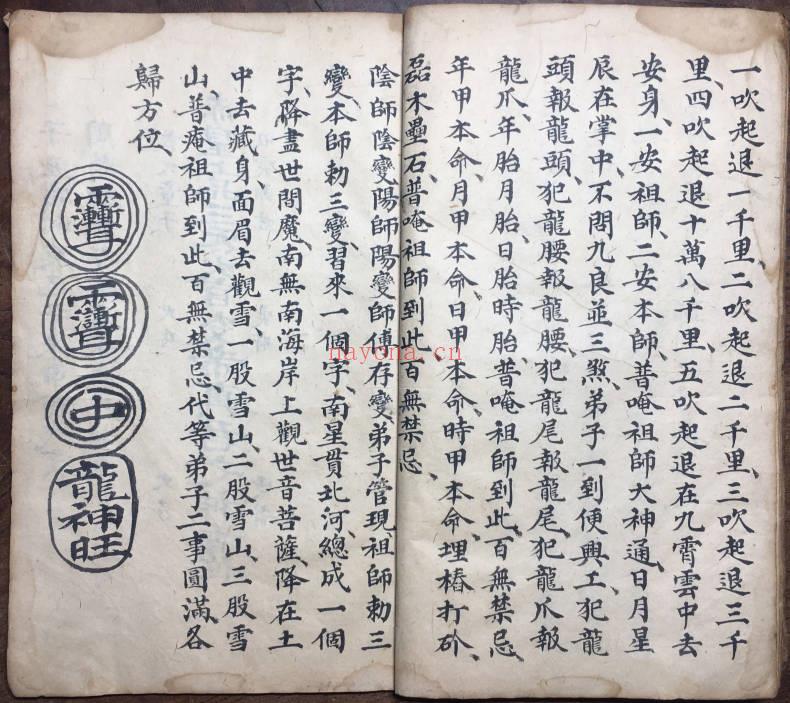 一吹起退一千里、二吹起退二千里、三吹起退三千
里、四吹起退十萬八千里、五吹起退在九霄雲中去
安身、一安祖師、二安本師、普唵祖師大神通、日月星
辰在掌中、不問九良並三煞、弟子一到便興工、犯龍
頭報龍頭、犯龍腰報龍腰、犯龍尾報龍尾、犯龍爪報
龍爪、年胎月胎、日胎時胎、普唵祖師到此、百無禁忌、
年甲本命、月甲本命、日甲本命、時甲本命、埋樁打砛、
磊木壘石、普唵祖師到此百無禁忌、
陰師陰變、陽師陽變、師傅存變、弟子管現、祖師勅三
變、本師勅三變、習來一個字、南星貫北河、總成一個
字、降盡世間魔、南無南海岸上觀世音菩薩、降在土
中去藏身、面眉去觀雪、一股雪山、二股雪山、三股雪
山、普庵祖師到此、百無禁忌、代等弟子二事圓滿、各
歸方位、
中
龍神旺
nayona.cn